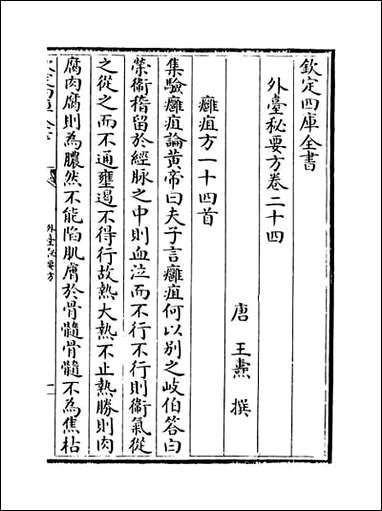 欽定四庫全書
外臺秘要方卷二十四
唐 王燾 撰
癰疽方一十四首
集驗癰疽論黃帝曰夫子言癰疽何以别之岐伯答曰
榮衞稽留於經脉之中則血泣而不行不行則衞氣從
之從之而不通壅遏不得行故熱大熱不止熱勝則肉
腐肉腐則為膿然不能陷肌膚於骨髓骨髓不為焦枯
外臺秘要方